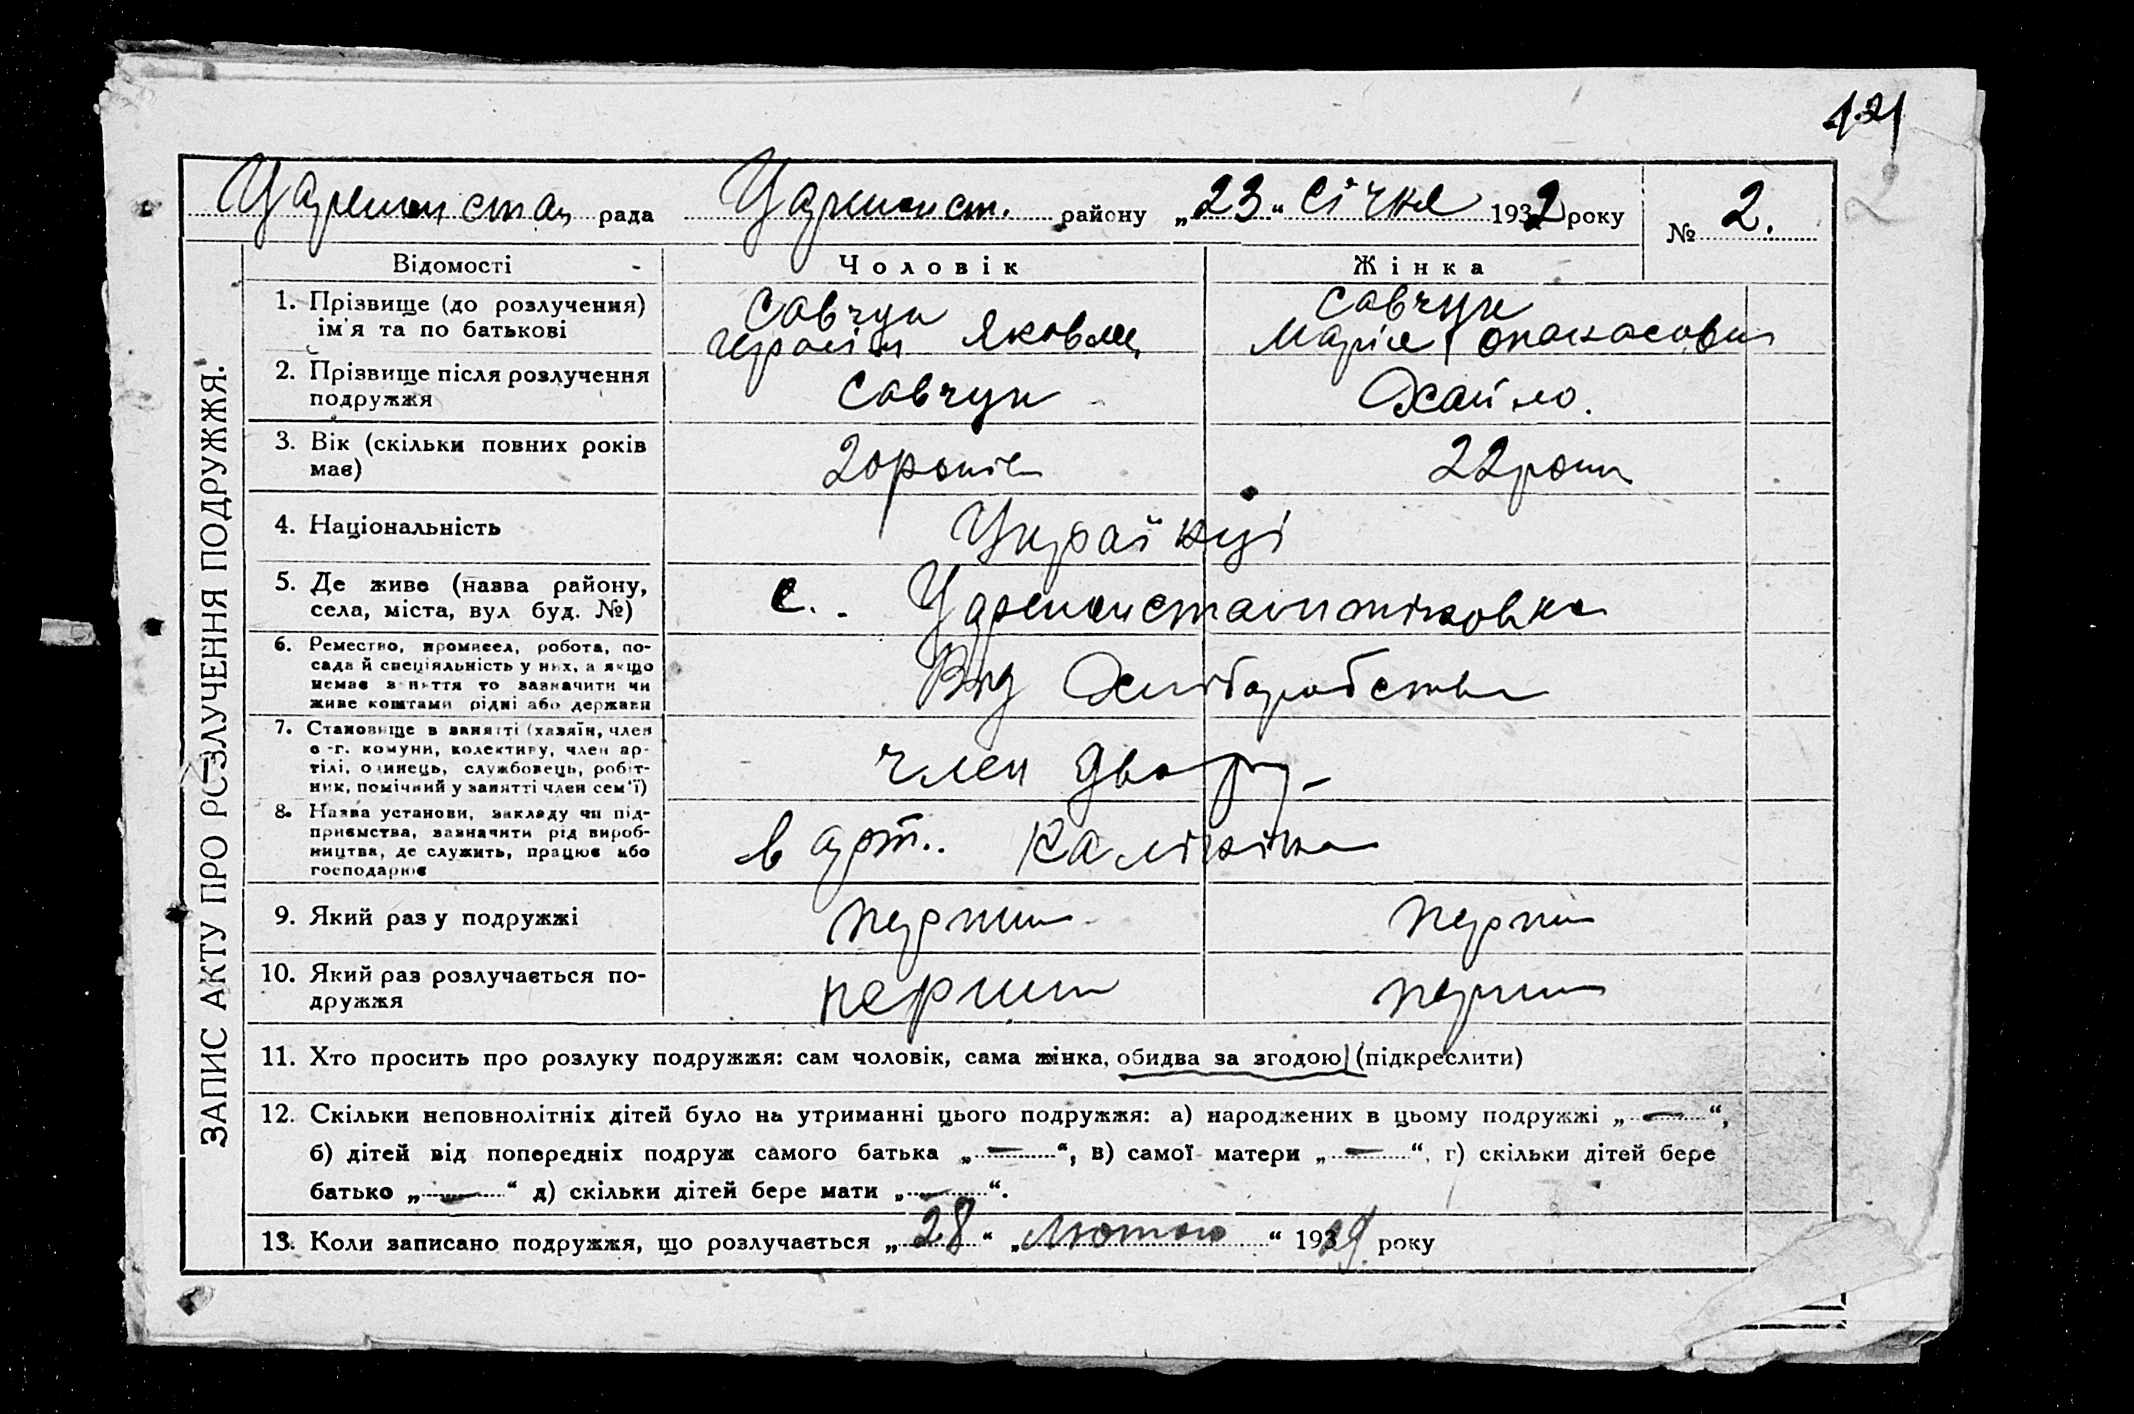 121
2
рада району „23“ січня 1932 року № 2.
ЗАПИС АКТУ ПРО РОЗЛУЧЕННЯ ПОДРУЖЖЯ.
Відомості Чоловік Жінка
1. Прізвище (до розлучення) Савчук Савчук
ім'я та по батькові Якович Марія
2. Прізвище після розлучення Савчук
подружжя
3. Вік (скільки повних років 20 років 22 роки
має)
4. Національність Українці
5. Де живе (назва району, с.
села, міста, вул буд. №)
6. Ремество, промисел, робота, по- Від Хліборобства
сада й спеціяльність у них, а якщо
немає заняття то зазначити чи
живе коштами рідні або держави
7. Становище в занятті (хазяїн, член член двору
с.-г. комуни, колективу, член ар-
тілі, одинець, службовець, робіт-
ник, помічний у занятті член сем'ї)
8. Назва установи, закладу чи під- в арт. Калініна
приємства, зазначити рід вироб-
ництва, де служить, працює або
господарює
9. Який раз у подружжі перший перший
10. Який раз розлучається по- перший перший
дружжя
11. Хто просить про розлуку подружжя: сам чоловік, сама жінка, обидва за згодою (підкреслити)
12. Скільки неповнолітніх дітей було на утриманні цього подружжя: а) народжених в цьому подружжі „—“,
б) дітей від попередніх подруж самого батька „—“, в) самої матери „—“, г) скільки дітей бере
батько „—“ д) скільки дітей бере мати „—“.
13. Коли записано подружжя, що розлучається „28“ „Лютого“ 1929 року